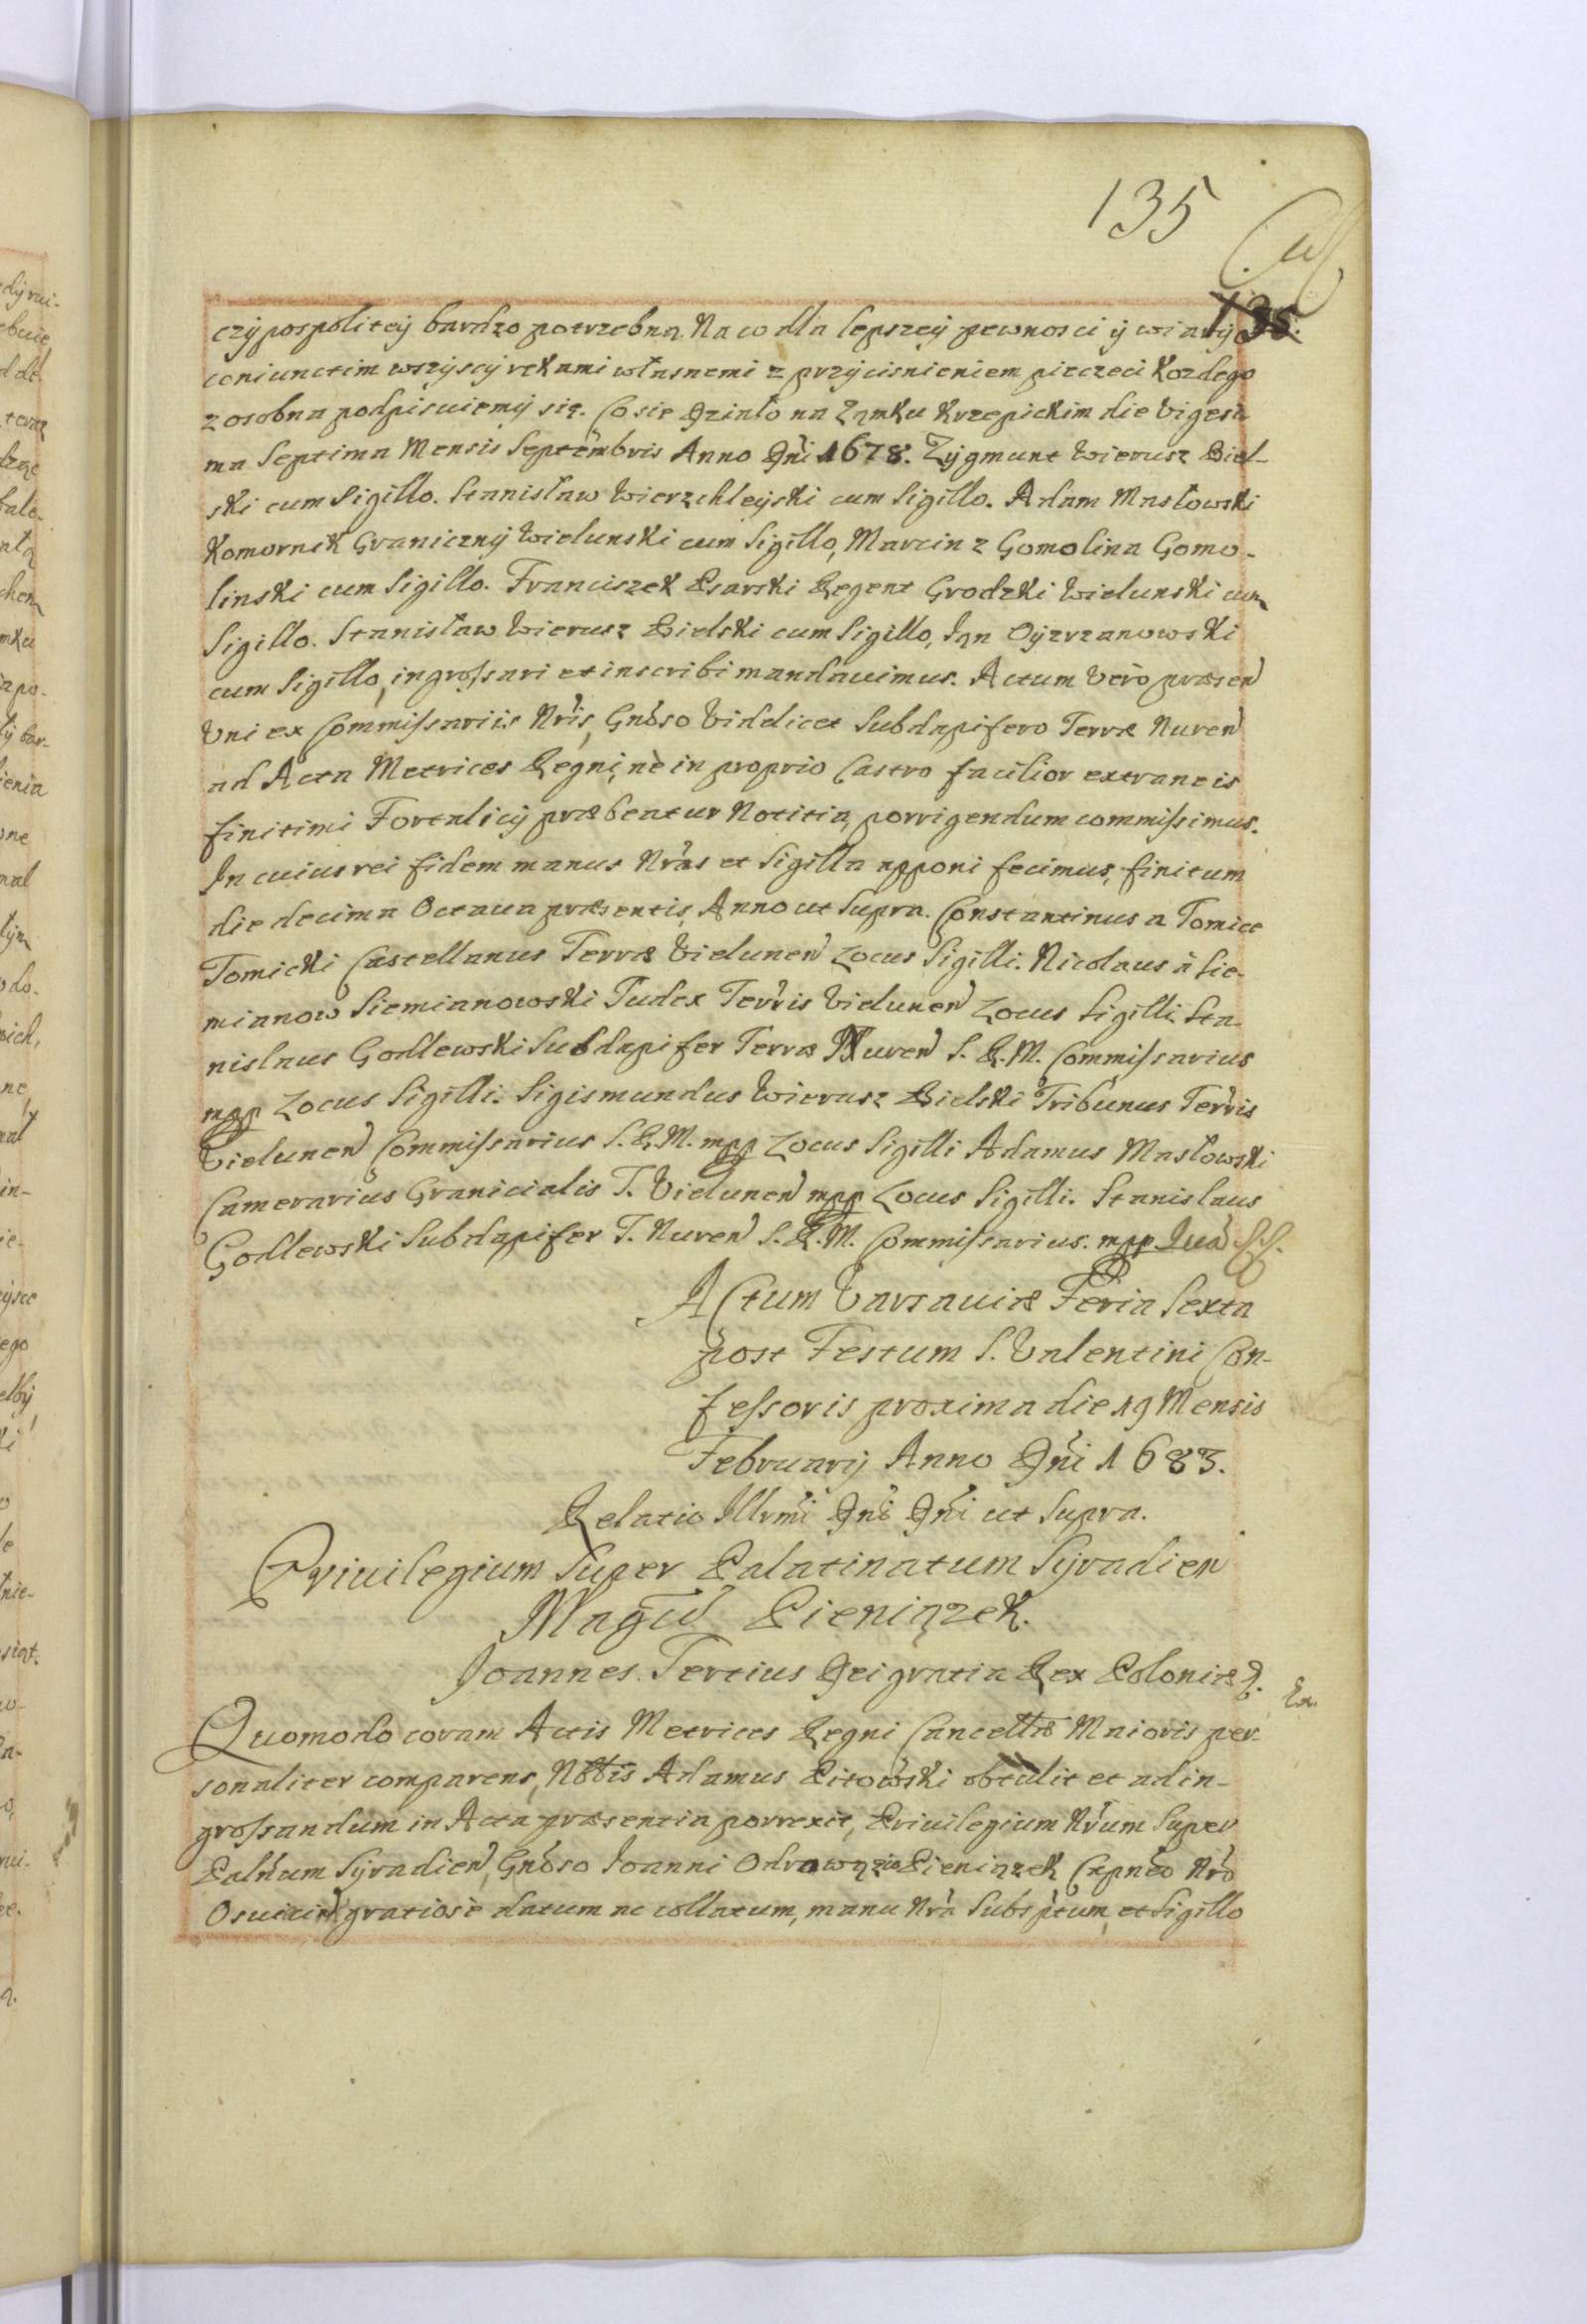 135
135.
czÿpospoliteÿ bardzo potrzebną. Na co dla lepszeÿ pewnosci ÿ wiarÿ
coniunctim wszÿscÿ rekami własnemi z przÿcisnieniem pieczeci Kozdego
z osobna podpisuiemÿ się. Co sie działo na Zamku Krzepickim die Vigesi
ma Septima Mensis Septembris Anno Dni 1678. Zÿgmunt Wierusz Biel-
ski cum Sigillo. Stanisław Wierzchleÿski cum Sigillo. Adam Masłowski
Komornik Granicznÿ Wielunski cum Sigillo, Marcin z Gomolina Gomo-
linski cum Sigillo. Franciszek Psarski Regent Grodzki Wielunski cum
Sigillo. Stanisław Wierusz Bielski cum Sigillo, Jan Oÿrzanowski
cum Sigillo, ingrossari et inscribi mandavimus. Actum verò præsen
Uni ex Commissariis Nris, Gnoso Videlicet Subdapifero Terræ Nuren
ad Acta Metrices Regni, nè in proprio Castro facilior extraneis
finitimi Fortalicÿ præbeatur Notitia, porrigendum commissimus.
In cuius rei fidem manus Nras et Sigilla apponi fecimus, finitum
die decima Octaua præsentis, Anno ut Supra. Constantinus a Tomice
Tomicki Castellanus Terræ Vielunen Locus Sigilli. Nicolaus à Sie-
mianow Siemianowski Judex Terris Vielunen Locus Sigilli. Sta-
nislaus Godlewski Subdapifer Terræ Nuren S. R. M. Commissarius
mpp Locus Sigilli. Sigismundus Wierusz Bielski Tribunus Terris
Vielunen Commissarius S. R. M. mpp Locus Sigilli Adamus Masłowski
Camerarius Granicialis T. Vielunen mpp Locus Sigilli. Stanislaus
Godlewski Subdapifer T. Nuren S. R. M. Commissarius. mpp
Actum Varsaviæ Feria Sexta
post Festum S. Valentini Con-
fessoris proxima die 19 Mensis
Februarÿ Anno Dni 1683.
Relatio Illrmi Dni Dni ut Supra.
Privilegium Super Palatinatum Sÿradien
Magco Pieniązek.
Joannes Tertius Dei gratia Rex Poloniæ
Quomodo coram Actis Metrices Regni Cancellræ Maioris per-
sonaliter comparens, Nobilis Adamus Pitowski obtulit et ad in-
grossandum in Acta præsentia porrexit, Privilegium Nrum Super
Palnum Sÿradien, Gnoso Joanni Odrowąz Pieniązek Capneo Nro
Osuiecin gratiosè datum ac collatum, manu Nra Subsptum, et Sigillo